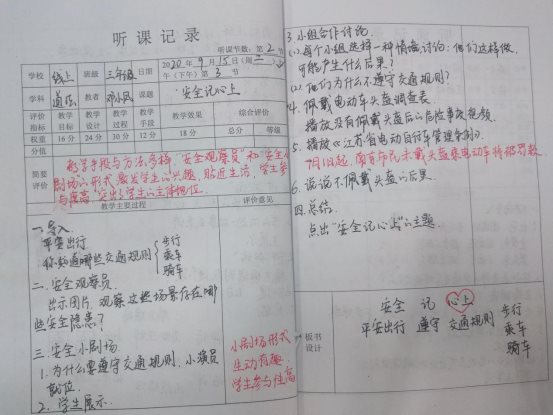 听课记录
听课节数：第2节
学校 线上 班级 三年级 日期 2020年9月15日(周二)
午(下午)第3节
学科 道法 教者 邓小凤 课题 安全记心上
评价指标 教学目标 教学设计 教学过程 教学手段 教学效果 综合评价
权重 16分 24分 30分 12分 18分 总分 等级
分值
简要评价
教学手段与方法多样，"安全观察员"和"安全小
剧场"的形式激发学生的兴趣，贴近生活，学生参
与度高，突出了学生的主体地位。
教学主要过程 评价意见
一.导入
平安出行
你知道哪些交通规则 步行
乘车
骑车
二.安全观察员
出示图片，观察这些场景存在哪
些安全隐患？
三.安全小剧场
1.为什么要遵守交通规则，小演员
就位。
2.学生展示.
小剧场形式
生动有趣，
学生参与性高
3.小组合作讨论.
(1).每个小组选择一种情境讨论：他们这样做，
可能产生什么后果？
(2).他们为什么不遵守交通规则？
4.佩戴电动车头盔调查表.
播放没有佩戴头盔后的危险事故视频.
5.播放《江苏省电动自行车管理条例》.
7月1日起，南京市民未戴头盔乘电动车将被罚款.
6.说说不佩戴头盔的后果.
四.总结.
点出"安全记心上"的主题.
板书设计
安全 记 心上
平安出行 遵守 交通规则 步行
乘车
骑车